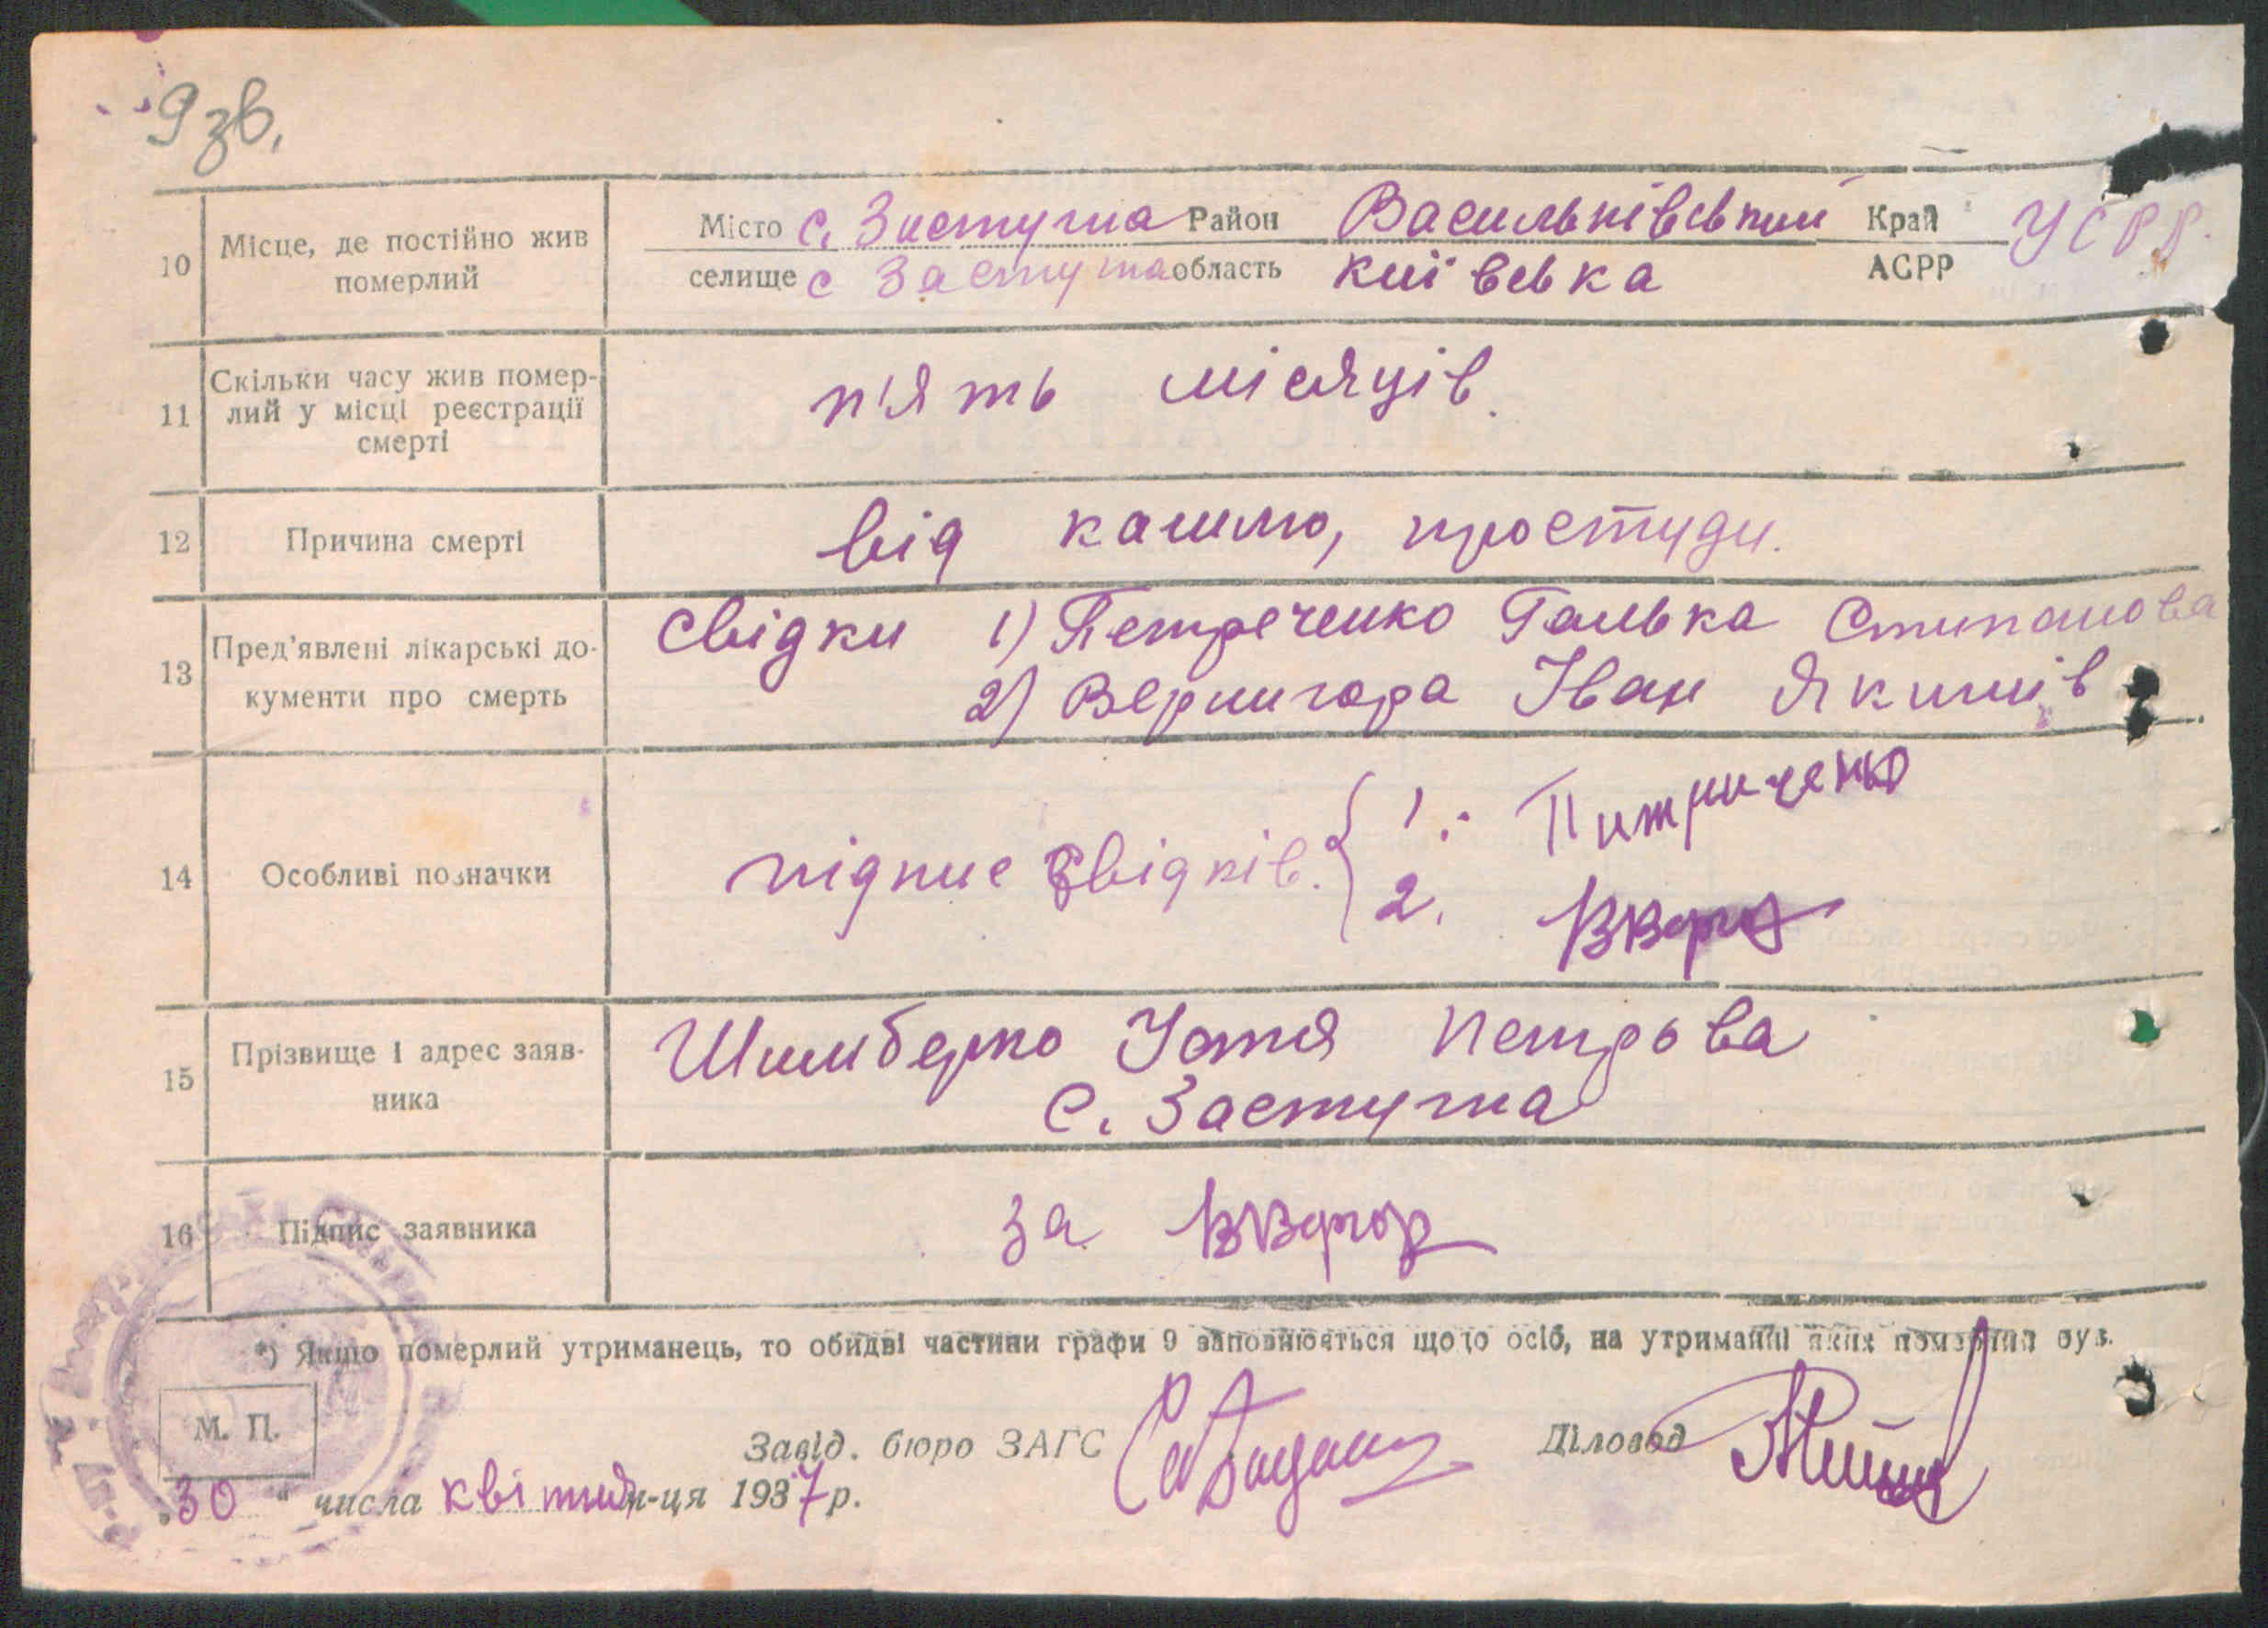 9 зв.
10 Місце, де постійно жив померлий
Місто с. Застугна Район Васильківський Край УСРР
селище с Застугна область київська АСРР
11 Скільки часу жив помер-
лий у місці реєстрації
смерті
п'ять місяців.
12 Причина смерті
від кашлю, простуди.
13 Пред'явлені лікарські до-
кументи про смерть
свідки 1) Петреченко Галька Степанова
2) Вернигора Іван Якимів
14 Особливі позначки
підпис свідків. 1. Питриченко
2.
15 Прізвище і адрес заяв-
ника
Устя Петрова
с. Застугна
16 Підпис заявника
за
*) Якщо померлий утриманець, то обидві частини графи 9 заповнюється щодо осіб, на утриманні яких померлий був.
М. П.
Завід. бюро ЗАГС
Діловод
„30 “ числа квітня м-ця 1937 р.